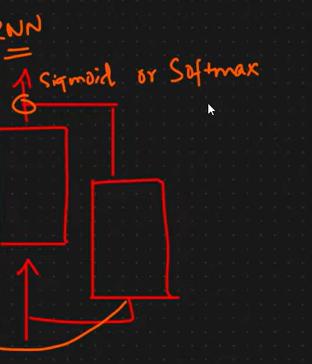 RNN
Sigmoid or Softmax